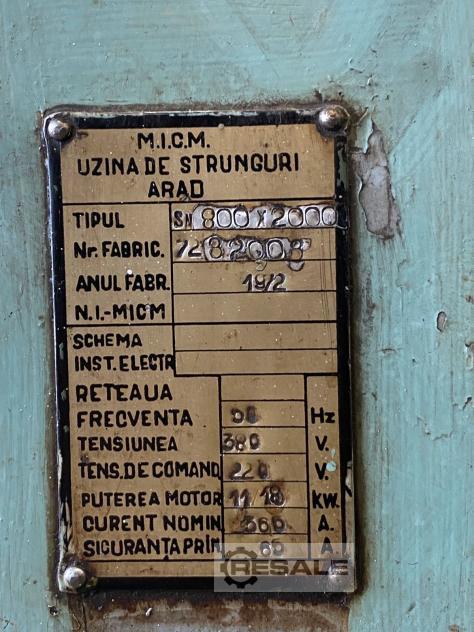 M.I.C.M.
UZINA DE STRUNGURI
ARAD
TIPUL SN 800 X 2000
Nr. FABRIC. 728200
ANUL FABR. 1972
N.I.-MICM
SCHEMA
INST. ELECTR
RETEAUA
FRECVENTA Hz
TENSIUNEA 380 V.
TENS. DE COMAND 220 V.
PUTEREA MOTOR 11/18 KW.
CURENT NOMIN. A.
SIGURANTA PRIN. A.
RESALE